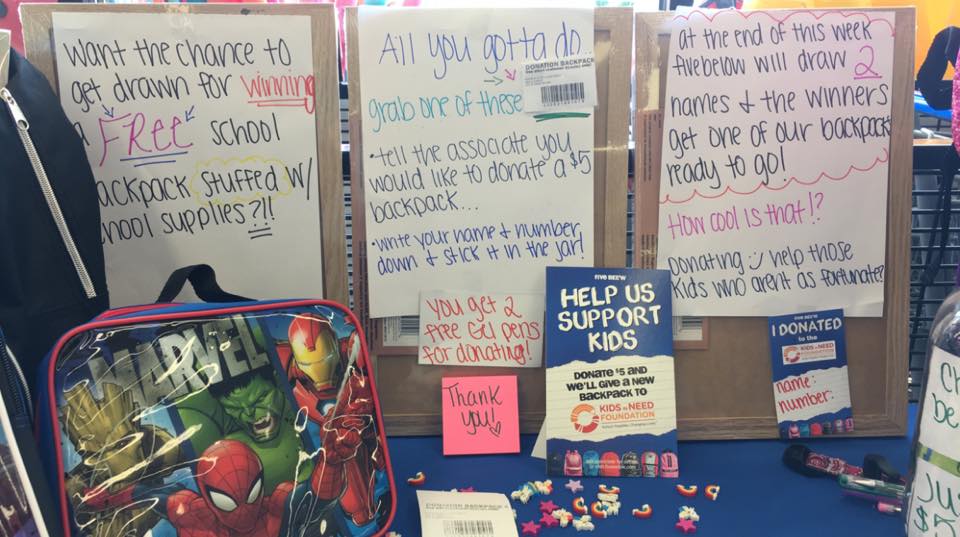 Want the chance to
get drawn for winning
a FREE school
backpack stuffed w/
school supplies?!!
All you gotta do...
grab one of these
DONATION BACKPACK
• tell the associate you
would like to donate a $5
backpack...
• write your name & number
down & stick it in the jar!
at the end of this week
fivebelow will draw 2
names & the winners
get one of our backpacks
ready to go!
How cool is that!?
Donating :) help those
kids who aren't as fortunate!
You get 2
free Gel pens
for donating!
Thank
you!
five BELOW
HELP US
SUPPORT
KIDS
DONATE $5 AND
WE'LL GIVE A NEW
BACKPACK TO
KIDS IN NEED
FOUNDATION
five BELOW
I DONATED
to the
KIDS IN NEED
FOUNDATION
name:
number:
MARVEL
DONATION BACKPACK
Ju
$